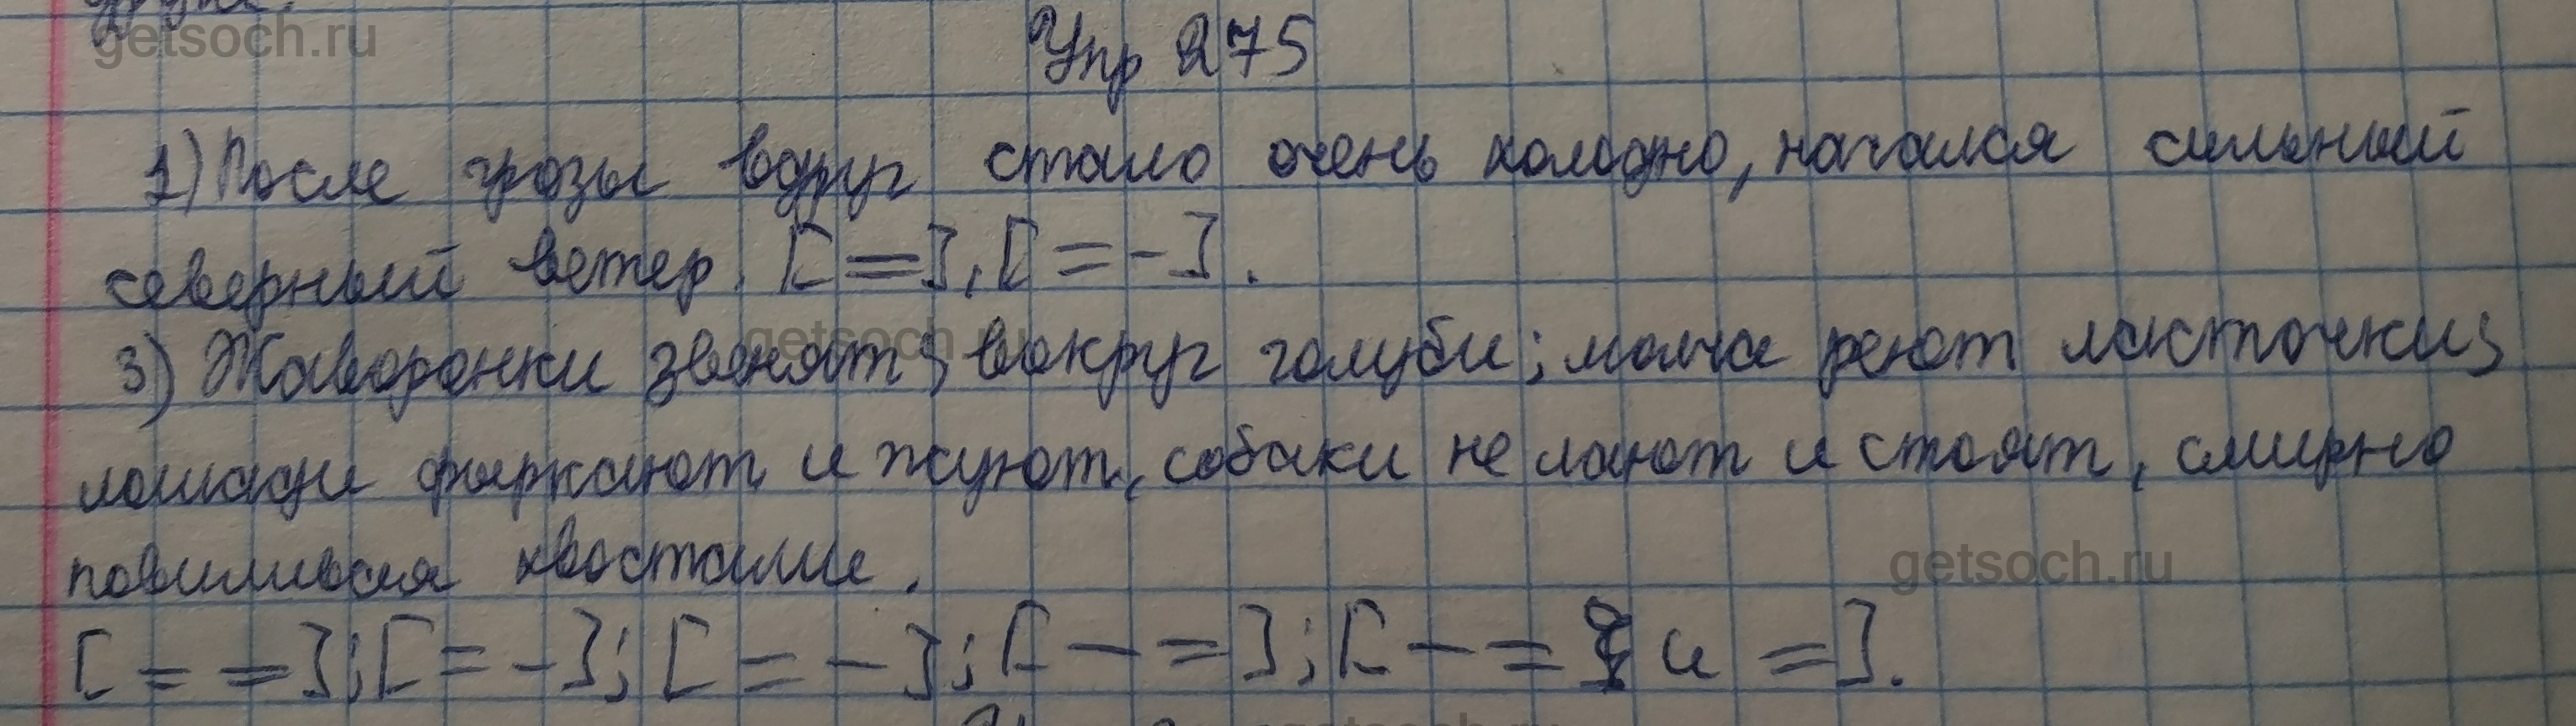 getsoch.ru
Упр 275
1) После грозы вдруг стало очень холодно, начался сильный
северный ветер. [=], [= -].
getsoch.ru
3) Жаворонки звенят; вокруг голуби; молча реют ласточки;
лошади фыркают и жуют, собаки не лают и стоят, смирно
повиливая хвостами.
getsoch.ru
[= =]; [= -]; [= -]; [- =]; [- = и =].
getsoch.ru